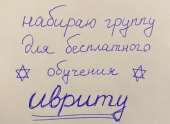 набираю группу
для бесплатного
обучения
ивриту